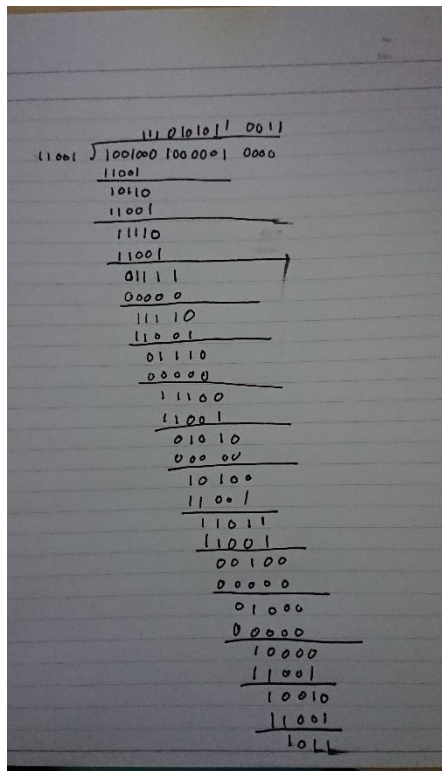 1110101011 0011
11001 ) 1001000 1000001 0000
11001
10110
11001
11110
11001
01111
00000
11110
11001
01110
00000
11100
11001
01010
00000
10100
11001
11011
11001
00100
00000
01000
00000
10000
11001
10010
11001
1011